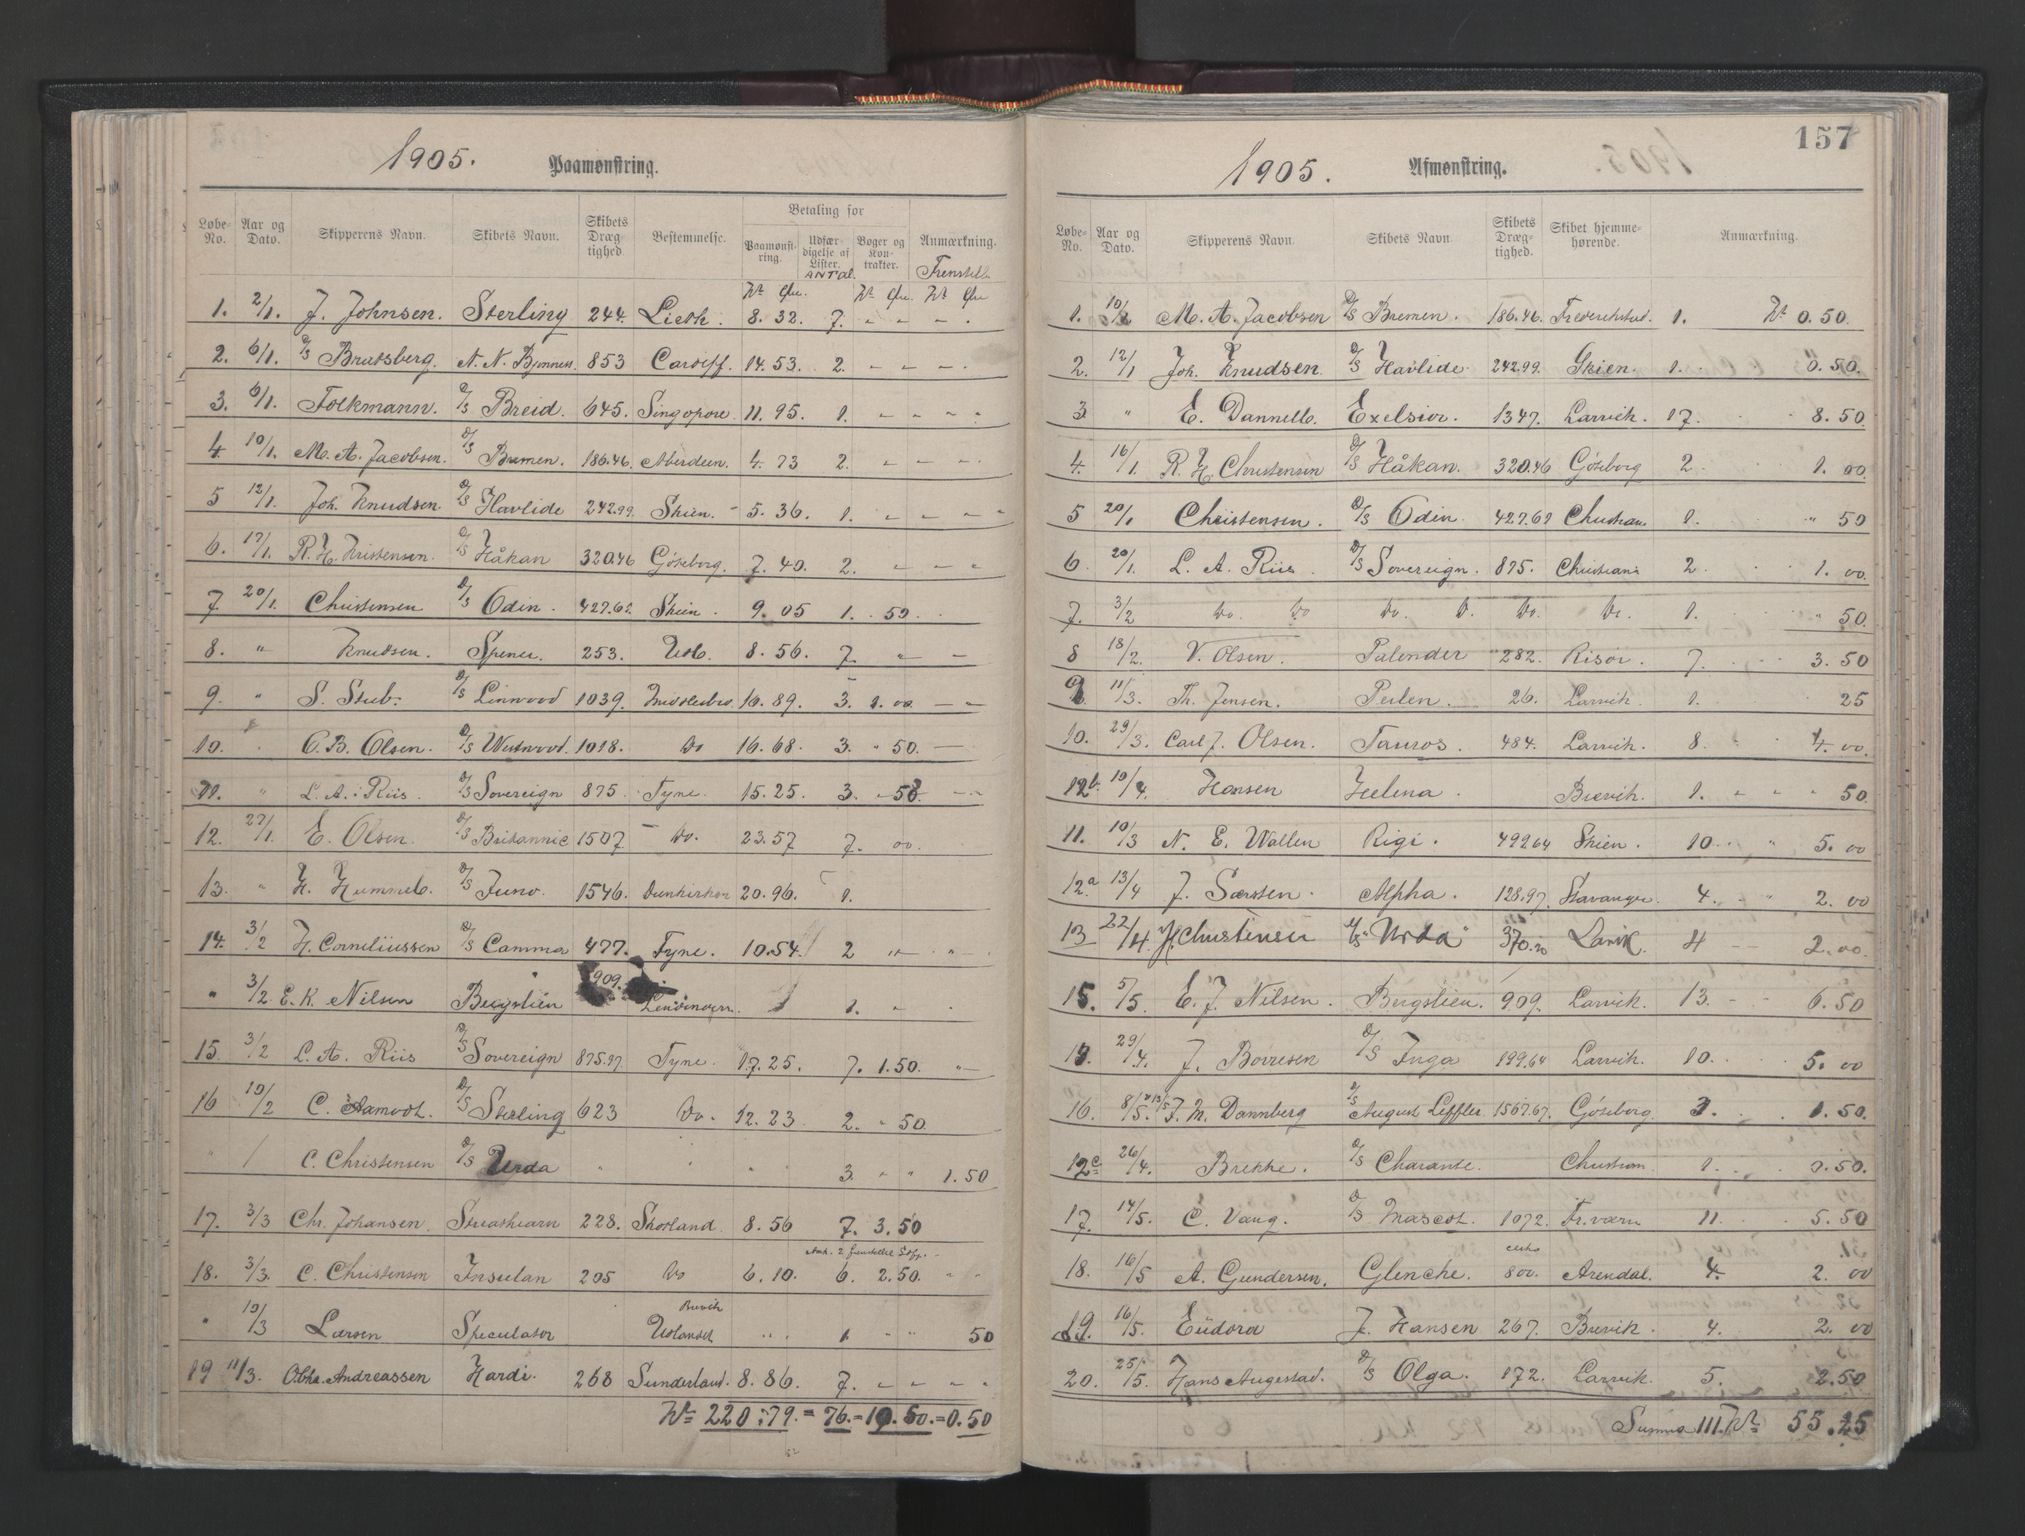 1905. Paamønstring.
Løbe-No. Aar og Dato. Skipperens Navn. Skibets Navn. Skibets Dræg-tighed Bestemmelse. Betaling for Paamønst-ring. Udfær-digelse af Lister. Antal. Bøger og Kon-trakter. Anmærkning.
Kr Øre. Kr Øre. Kr Øre
1. 2/1. J. Johnsen. Sterling 244. Lieth. 8. 32. 7. " " " .
2. 6/1. D/S Bratsberg. N. N. Bjønness 853 Cardiff. 14. 53. 2. " " " .
3. 6/1. Folkmann. D/S Breid. 645. Singopore. 11. 95. 1. " " " "
4. 10/1. M. A. Jacobsen. D/S Bremen. 186.46. Aberdeen. 4. 73 2. " " "
5 12/1. Joh. Knudsen. D/S Havlide 242.99. Skien. 5. 36. 1. " " " "
6. 17/1. R. H. Kristensen. D/S Håkan 320.46 Göteborg. 7. 40. 2. " " "
7 20/1. Christensen D/S Odin. 427.62. Skien. 9. 05 1. . 50.
8. " Knudsen. Spener. 253. Udl. 8. 56. 7. " "
9. " S. Stub. D/S Linwood 1039. Middlesbro. 16. 89. 3. 1. 00. " "
10. " O. B. Olsen. D/S Westwood. 1018. Do 16. 68. 3. " 50.
11. " L. A. Riis. D/S Sovereign 875. Tyne. 15. 25. 3. " 50 " "
12. 27/1. E. Olsen. D/S Britannic 1507 Do. 23. 57 7. 00.
13. " H. Hummel. D/S Juno. 1546. Dunkirken 20. 96. 1.
14. 3/2 H. Corneliussen D/S Camma 477. Tyne. 10. 54. 2 " "
" 3/2 E. K. Nilsen Bergslien 909. 1. "
15. 3/2 L. A. Riis D/S Sovereign 875.97 Tyne. 17. 25. 7. 1. 50. "
16 10/2 C. Aamodt. D/S Sterling 623 Do. 12. 23. 2. " 50.
" / C. Christensen D/S Urda " " " " 3. " " 1. 50
17. 3/3 Chr. Johansen. Strathearn 228. Skotland. 8. 56 7. 3. 50
18. 3/3. C. Christensen Insulan 205 Do 6. 10. 6. 2. 50. " "
" 10/3 Larsen Speculator Brevik Udlandet " " 1. " " 50
19 11/3. Andreassen Hardi. 268 Sunderland. 8. 86. 7. " " " "
Kr= 220 : 79. = 76. = 10. 50. = 0. 50
157
1905. Afmønstring.
Løbe-No. Aar og Dato. Skipperens Navn. Skibets Navn. Skibets Dræg-tighed Skibet hjemme-hørende. Anmærkning.
1. 10/1 M. A. Jacobsen D/S Bremen. 186.46. Frederikstad. 1. Kr 0. 50.
2. 12/1 Joh. Knudsen. D/S Havlide. 242.99. Skien. 1. 0. 50.
3. " E. Dannell. Exelsior. 1347. Larvik. 17. 8. 50
4. 16/1. R. H. Christensen D/S Håkan. 320.46 Göteborg 2. 1. 00.
5 20/1 Christensen. D/S Odin. 427.62 Christian. 1. " 50
6. 20/1. L. A. Riis. D/S Sovereign. 875. Christians 2. 1. 00.
7. 3/2 Do Do Do. D. Do. Do. 1. " 50.
8 18/2. V. Olsen. Palender 282. Risör. 7. 3. 50
9. 11/3. Th. Jensen. Perlen. 26. Larvik. 1. 25
10. 29/3. Carl J. Olsen. Tauros. 484. Larvik. 8. " 4. 00.
12b. 10/4. Hansen Helena. Brevik. 1. " " " 50.
11. 10/3 N. E. Wallen Rigi. 499.64 Skien. 10. " 5. 00
12a. 13/4 J. Sørsten. Alpha. 128.97. Stavanger. 4. " 2. 00
13 22/4 H Christensen D/S "Urda" 370.20 Larvik. 4 — 2. 00.
15. 5/5 E. J. Nilsen. Bergslien. 909. Larvik. 13. 6. 50
13. 29/4. J. Borresen D/S Inga 199.64 Larvik. 10. 5. 00
16. 8/5. 13/5 F. M. Dannberg D/S August Leffler. 1567.67. Göteborg. 3. 1. 50.
12c. 26/4. Brekke. D/S Charante. Christian. 1. 0. 50.
17. 14/5. C. Vang. D/S Mascot. 1072. Fr.værn 11. 5. 50
18. 16/5 A. Gundersen. Glenche. 800. Arendal. 4. 2. 00
19. 16/5. Eüdora J. Hansen 267. Brevik. 4. 2. 00
20. 25/5. Hans Augestad. D/S Olga. 172. Larvik. 5. 2. 50
Summa 111. Kr 55. 25